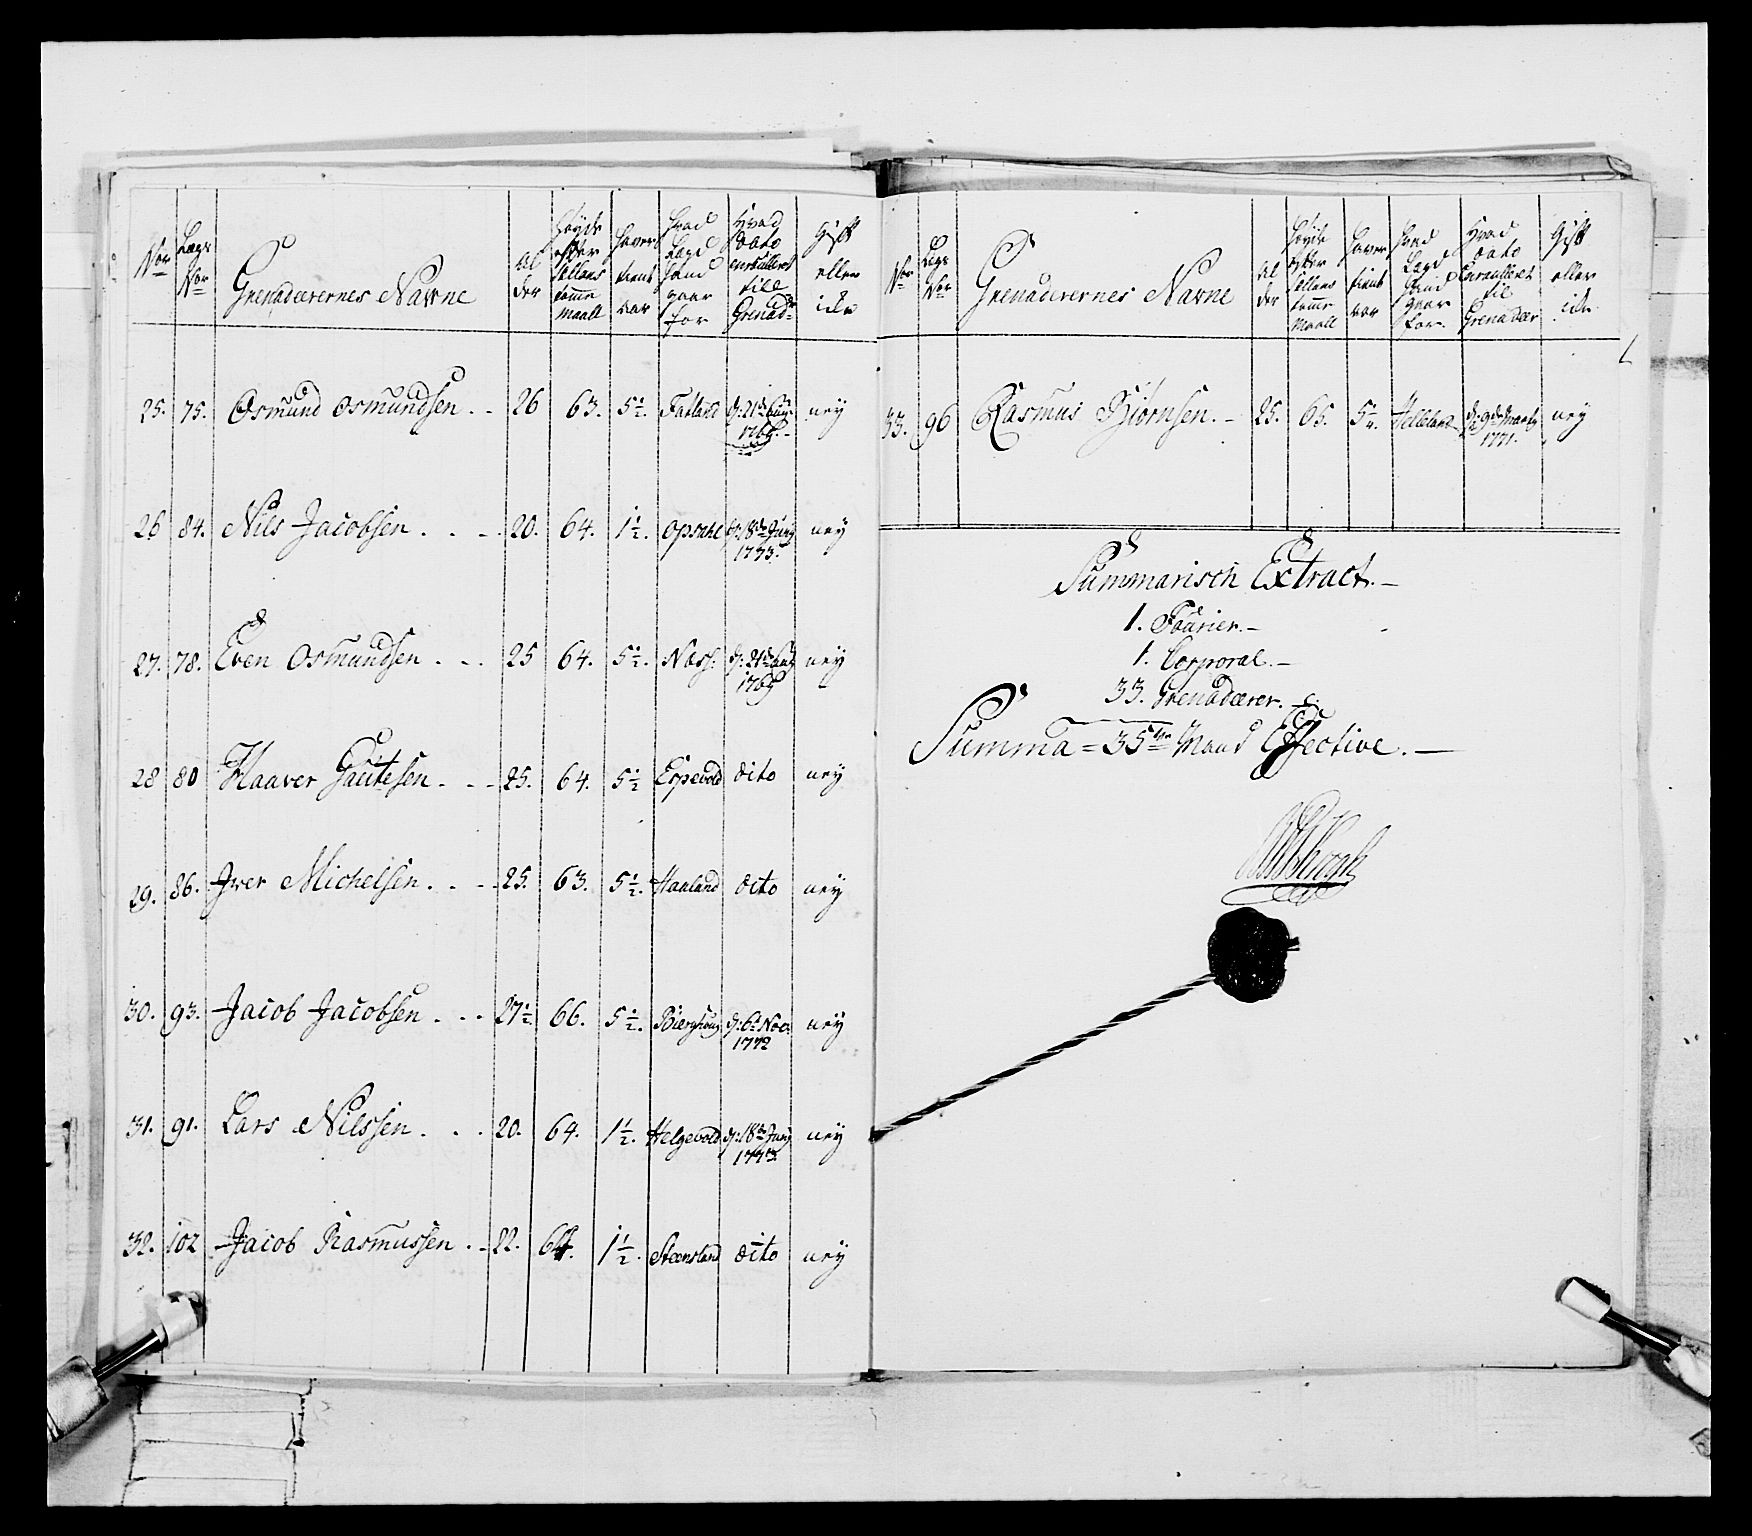 Nor Lægs Nor Grenadærernes Navne Alder Høyde efter Sællans domme Maall Haver tient aar Hvad Lægd hand gaar for Hvad dato enroulleret till Grenadr Gift eller ikke
25. 75. Osmund Osmundsen . . 26 63. 5½. Fatland ney
26 84. Nils Jacobsen . . . . 20. 64. 1½. Opsahl d: 18de Juny 1773. ney
27. 78. Even Osmundsen . . . 25 64. 5½. ney
28 80 Haaver Gautesen . . . 25. 64. 5½ Espevold dito ney
29. 86. Iver Michelsen . . . 25. 63. 5½. Haaland dito ney
30. 93. Jacob Jacobsen . . . 27½. 66. 5½. d: 6t Nov: 1772 ney
31. 91. Lars Nilssen . . . 20. 64. 1½. Helgevold d: 18de Juny 1773. ney
32. 102 Jacob Rasmussen . . 22. 64. 1½. Steensland dito ney
Nor Lægs Nor Grenaderernes Navne Alder Høyde efter Sællans domme Maall Haver tient aar Hvad Lægd hand gaar for Hvad dato Enroulleret til Grenadær Gift eller ikke
33. 96 Rasmus Biørnsen. - 25. 65. Helleland d: 9de Marty 1771. ney
Summarisch Extract. -
1. Fourier. -
1. Corporal. -
33. Grenadærer.
Summa = 35ve Mand Effective. -